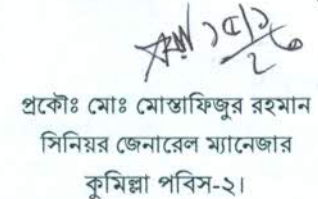 প্রকৌঃ মোঃ মোস্তাফিজুর রহমান
সিনিয়র জেনারেল ম্যানেজার
কুমিল্লা পবিস-২।